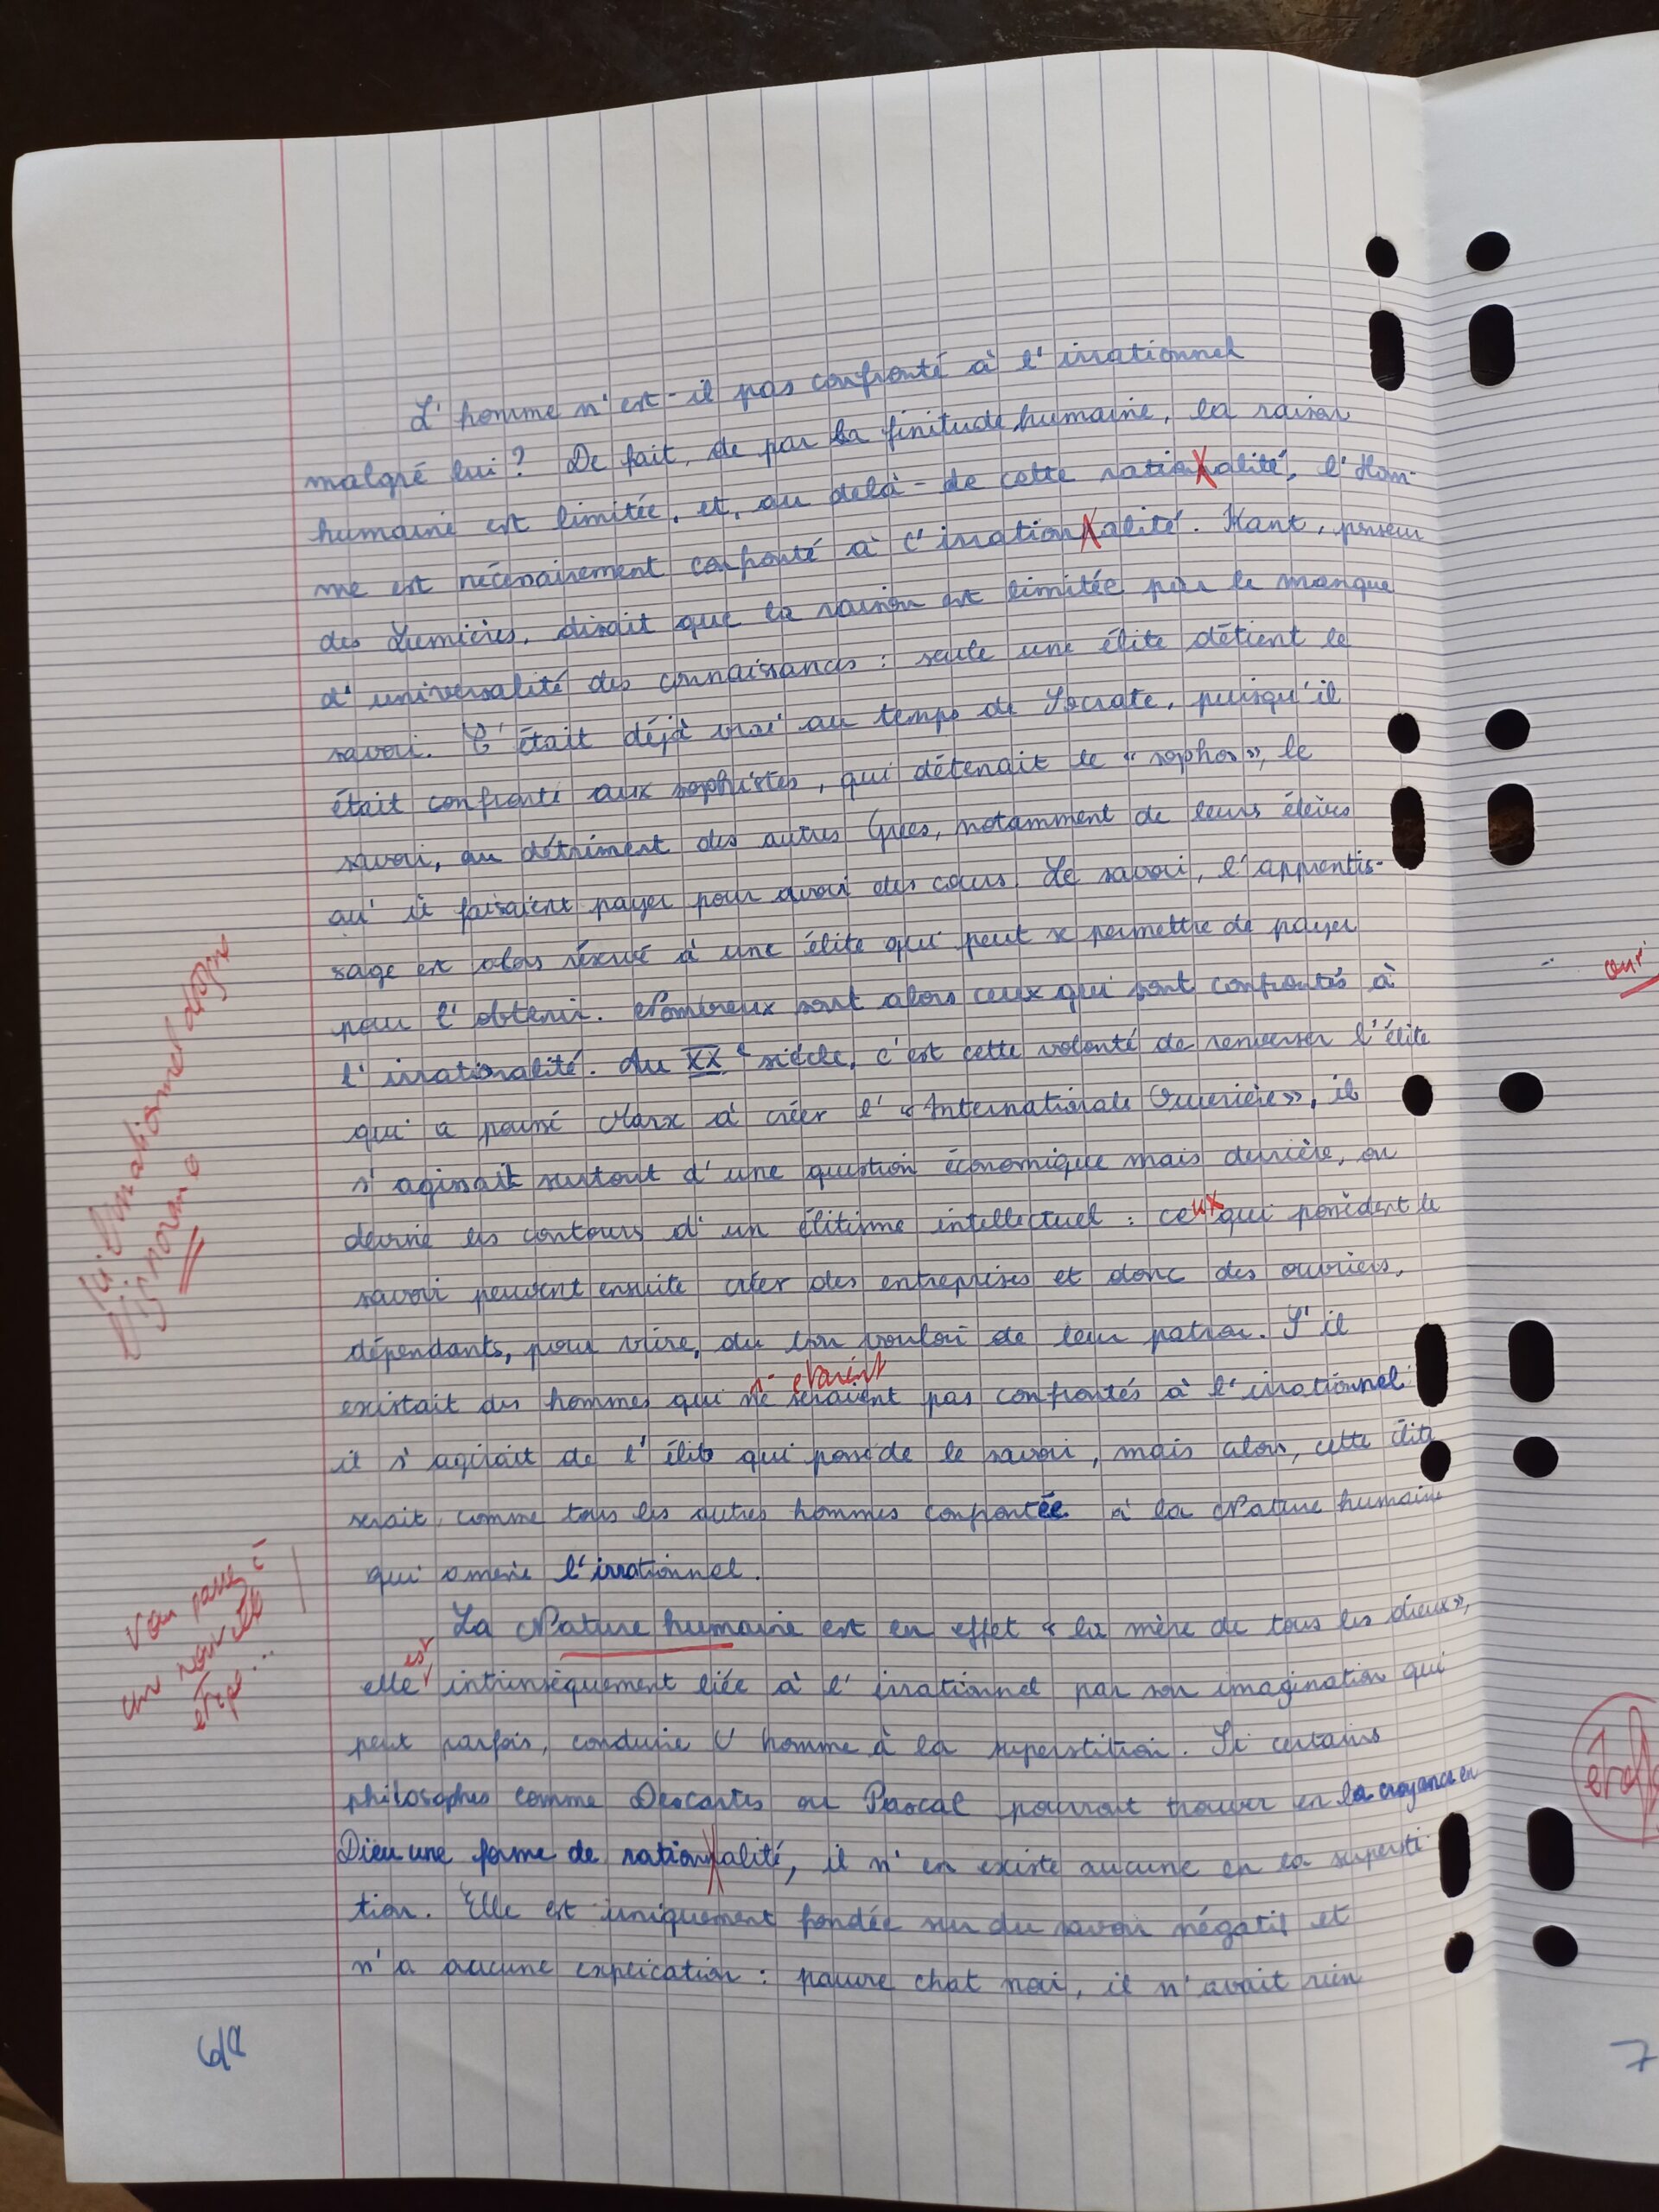 L'homme n'est-il pas confronté à l'irrationnel
malgré lui ? De fait, de par la finitude humaine, la raison
humaine est limitée, et, au delà - de cette rationnalité, l'Hom-
me est nécessairement confronté à l'irrationnalité. Kant, penseur
des Lumières, disait que la raison est limitée par le manque
d'universalité des connaissances : seule une élite détient le
savoir. C'était déjà vrai au temps de Socrate, puisqu'il
était confronté aux sophistes, qui détenait le « sophos », le
savoir, au détriment des autres Grecs, notamment de leurs élèves
qu'il faisaient payer pour avoir des cours. Le savoir, l'apprentis-
sage est alors réservé à une élite qui peut se permettre de payer
pour l'obtenir. Nombreux sont alors ceux qui sont confrontés à
l'irrationalité. Au XXe siècle, c'est cette volonté de renverser l'élite
qui a poussé Marx à créer l'« Internationale Ouvrière », il
s'agissait surtout d'une question économique mais derrière, on
devine les contours d'un élitisme intellectuel : ceux qui possèdent le
savoir peuvent ensuite créer des entreprises et donc des ouvriers,
dépendants, pour vivre, du bon vouloir de leur patron. S'il
n'étaient
existait des hommes qui ne seraient pas confrontés à l'irrationnel
il s'agirait de l'élite qui possède le savoir, mais alors, cette élite
serait, comme tous les autres hommes confrontée à la Nature humaine
qui amène l'irrationnel.
l'irrationnel désigne
l'ignorance
La Nature humaine est en effet « la mère de tous les dieux »,
est
elle intrinsèquement liée à l'irrationnel par son imagination qui
peut parfois, conduire l'homme à la superstition. Si certains
philosophes comme Descartes ou Pascal pourrait trouver en la croyance en
Dieu une forme de rationnalité, il n'en existe aucune en la supersti-
tion. Elle est uniquement fondée sur du savoir négatif et
n'a aucune explication : pauvre chat noir, il n'avait rien
vous passez à
une nouvelle
étape...
6/8
7